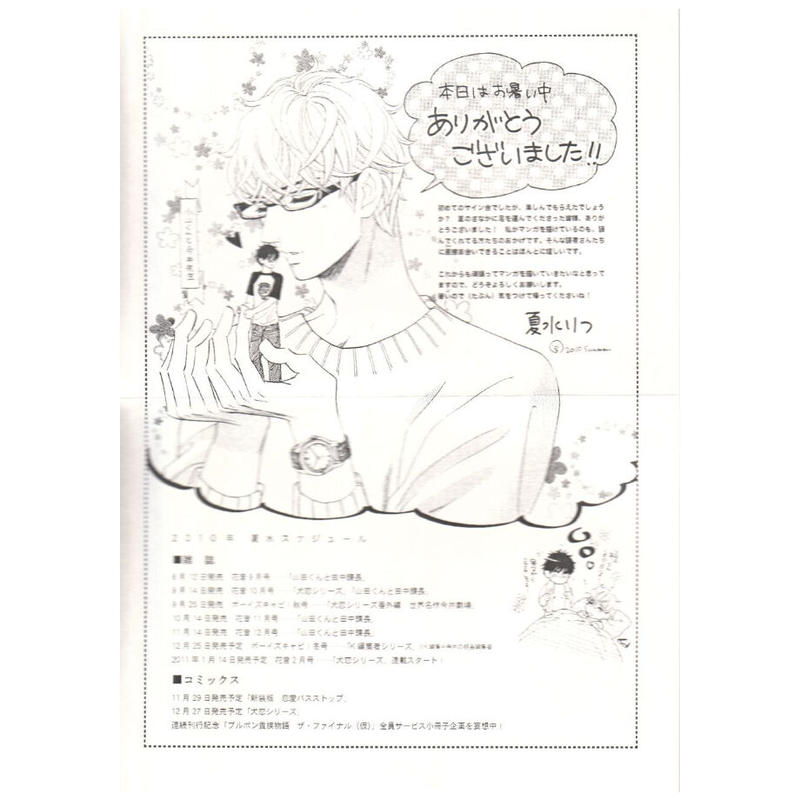 本日はお暑い中
ありがとう
ございました!!
初めてのサイン会でしたが、楽しんでもらえたでしょう
か? 夏のさなかに足を運んでくださった皆様、ありが
とうございました! 私がマンガを描けているのも、読
んでくれてる方たちのおかげです。そんな読者さんたち
に直接お会いできることはほんとに嬉しいです。
これからも頑張ってマンガを描いていきたいなと思って
ますので、どうぞよろしくお願いします。
暑いので(たぶん)気をつけて帰ってくださいね!
夏水りつ
2010 Summer
2010年 夏水スケジュール
■雑誌
8月12日発売 花音9月号……「山田くんと田中課長」
9月14日発売 花音10月号……「犬恋シリーズ」「山田くんと田中課長」
9月25日発売 ボーイズキャピ!秋号……「犬恋シリーズ番外編 世界名作今井劇場」
10月14日発売 花音11月号……「山田くんと田中課長」
11月14日発売 花音12月号……「山田くんと田中課長」
12月25日発売予定 ボーイズキャピ!冬号……「K編集者シリーズ」
2011年1月14日発売予定 花音2月号……「犬恋シリーズ」連載スタート!
■コミックス
11月29日発売予定「新装版 恋愛バスストップ」
12月27日発売予定「犬恋シリーズ」
連続刊行記念「ブルボン貴族物語 ザ・ファイナル(仮)」全員サービス小冊子企画を妄想中!